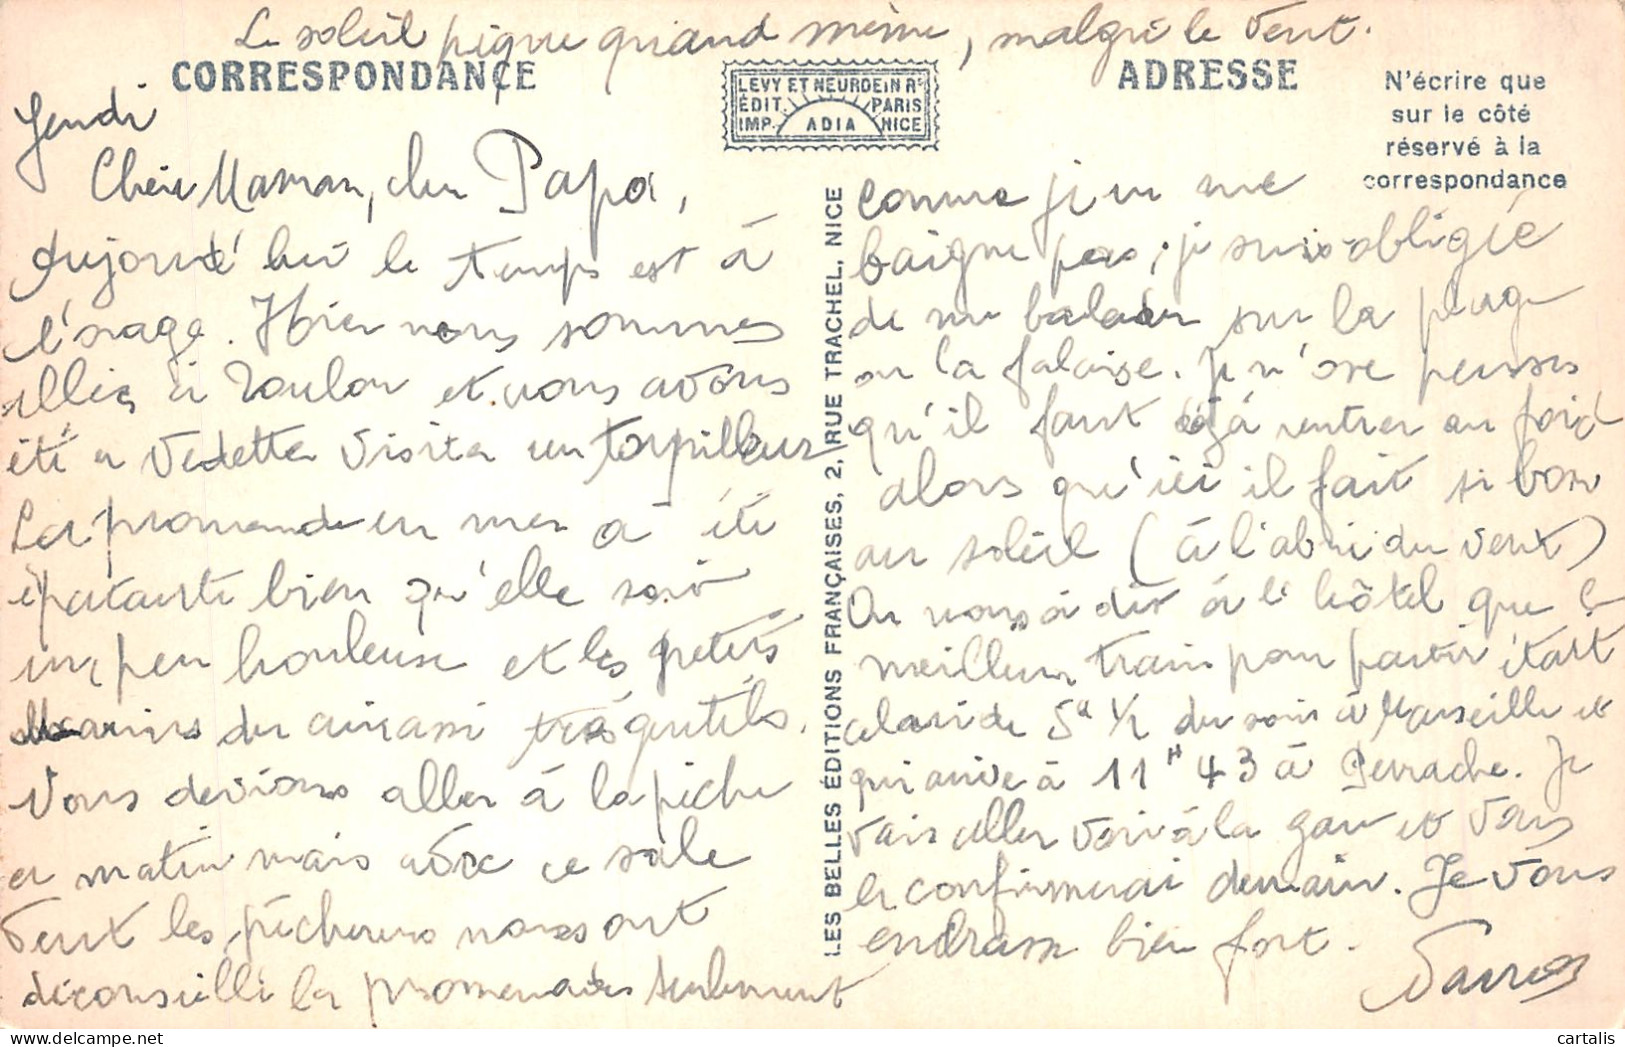 Le soleil pique quand même, malgré le vent.
CORRESPONDANCE
LEVY ET NEURDEIN Rs
ÉDIT. PARIS
IMP. ADIA NICE
ADRESSE
N'écrire que
sur le côté
réservé à la
correspondance
Jeudi
Chère Maman, cher Papa,
Aujourd'hui le temps est à
l'orage. Hier nous sommes
allés à Toulon et nous avons
été en vedette visiter un torpilleur
La promenade en mer a été
épatante bien qu'elle soit
un peu houleuse et les petits
marins du cuirassé très gentils.
Nous devions aller à la pêche
ce matin mais avec ce sale
vent les pêcheurs nous ont
déconseillé la promenade seulement
LES BELLES ÉDITIONS FRANÇAISES, 2, RUE TRACHEL, NICE
comme je ne me
baigne pas, je suis obligée
de me balader sur la plage
ou la falaise. Je n'ose penser
qu'il faut déjà rentrer au froid
alors qu'ici il fait si bon
au soleil (à l'abri du vent)
On nous a dit à l'hôtel que le
meilleur train pour partir était
celui de 5h 1/2 du soir à Marseille et
qui arrive à 11H 43 à Perrache. Je
vais aller voir à la gare et vous
le confirmerai demain. Je vous
embrasse bien fort.
cartalis